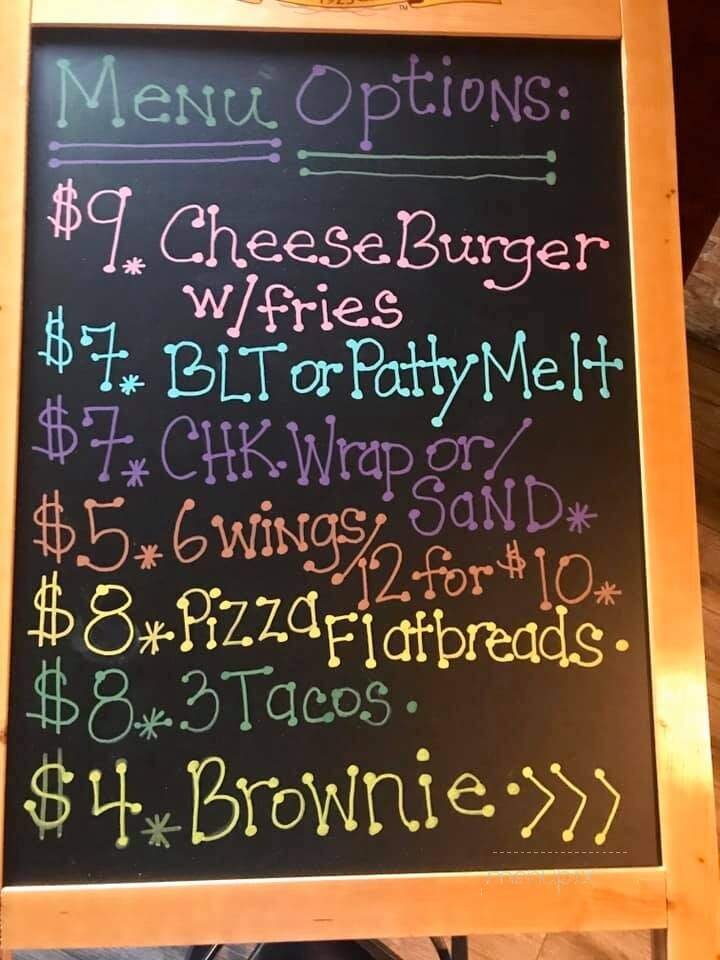 1925
TM
Menu Options:
$9* Cheese Burger
w/fries
$7* BLT or Patty Melt
$7* CHK. Wrap or/
SaND*
$5* 6 wings/
12 for $10*
$8* Pizza Flatbreads.
$8* 3 Tacos.
$4* Brownie >>>
menupix